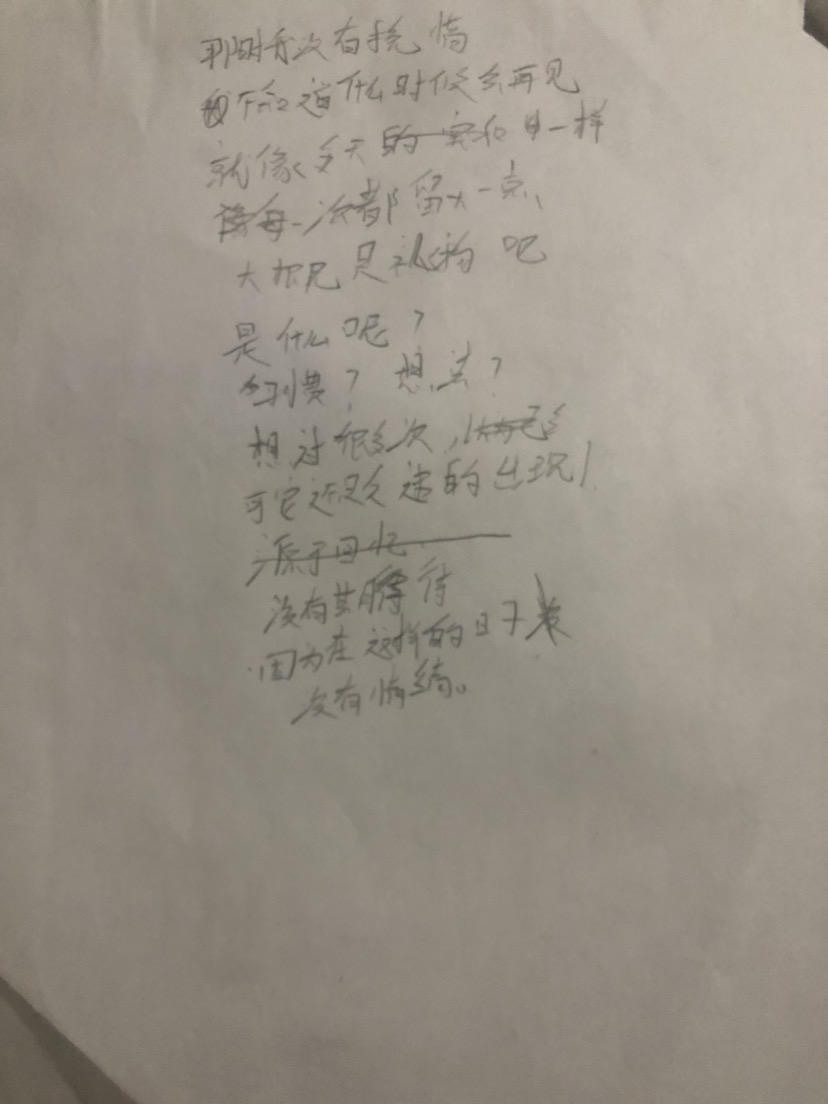 那时我没有挽情
不知道什么时候会再见
就像冬天的 一样
每一次都留大一点
大概是礼物吧
是什么呢?
习惯? 想法?
想过很多次,
可它还是会 的出现
源于回忆
没有其 待
因为在这样的日子
没有情绪。